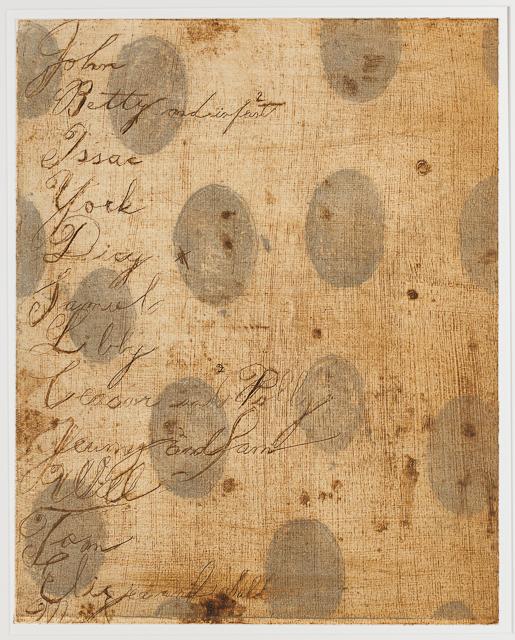 John
Betty and infant 2
Issac
York
Dicy
Samuel
Libby
Ceason and 2 Polly
Jenny and Sam
Will
Tom
Eliza and child